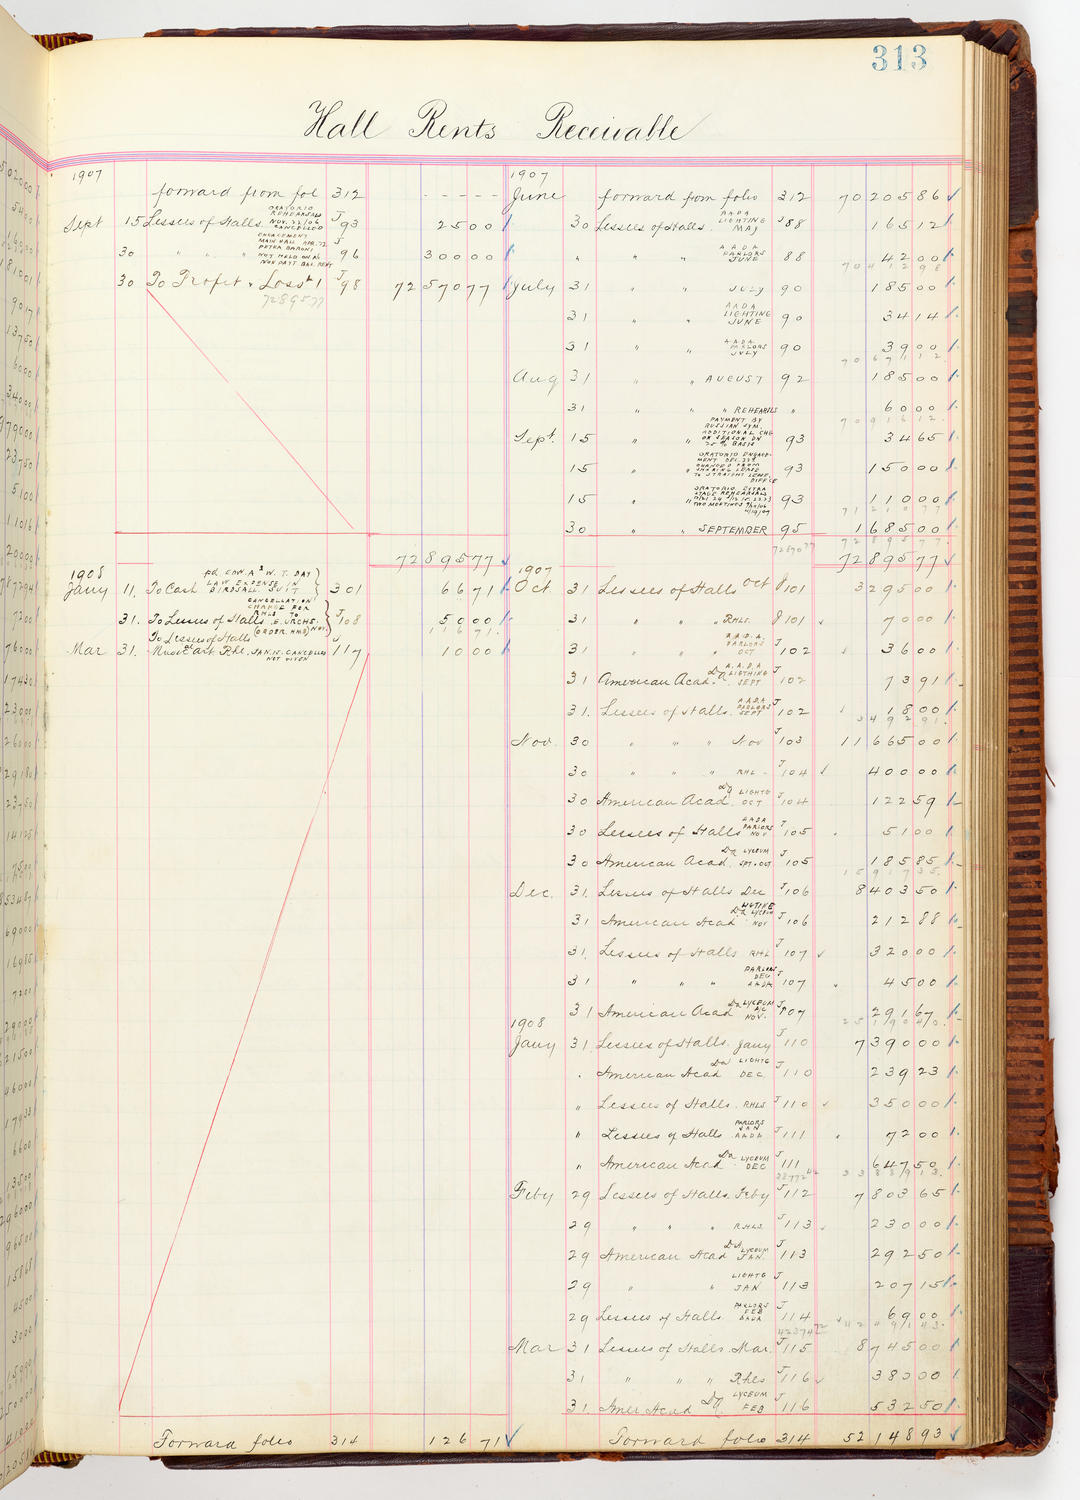 313
Hall Rents Receivable
1907
forward from fol 312 - - - - -
Sept 15 Lessees of Halls ORATORIO REHEARSALS NOV. 22/06 CANCELLED J 93 25 00
30 " " " ENGAGEMENT MAIN HALL APR. 22 J 96 300 00
30 To Profit & Loss J 98 72570 77
7289577
72895 77
1908
Jany 11. To Cash pd. EDW. A. & W. T. DAY LAW EXPENSE IN BIRDSALL SUIT 301 66 71
31. To Lessees of Halls CANCELLATION CHARGE FOR RHLS TO J 108 50 00
116 71
To Lessees of Halls
Mar 31. Musical Art Rhl. JAN. 15. CANCELLED NOT GIVEN J 117 10 00
Forward folio 314 126 71
1907
June forward from folio 312 70205 86
30 Lessees of Halls AADA LIGHTING MAY J 88 165 12
" " AADA PARLORS JUNE 88 42 00
70412 98
July 31 " " JULY 90 185 00
31 " " AADA LIGHTING JUNE 90 34 14
31 " " AADA PARLORS JULY 90 39 00
70671 12
Aug 31 " " AUGUST 92 185 00
31 " " " REHEARSLS " 60 00
70916 12
Sept. 15 " " PAYMENT BY RUSSIAN SYM. ADDITIONAL CHG ON SEASON ON 25% BASIS 93 34 65
15 " " ORATORIO ENGAGEMENT DEC. CHANGED FROM SHARING LEASE TO STRAIGHT LEASE, DIFFCE 93 150 00
15 " " ORATORIO EXTRA STAGE REHEARSALS TWO MEETINGS 93 110 00
71210 77
30 " " SEPTEMBER 95 1685 00
72895 77
72895 77
1907
Oct 31 Lessees of Halls Oct J 101 3295 00
31 " " " RHLS. J 101 70 00
31 " " " A.A.D.A. PARLORS OCT J 102 36 00
31 American Acad. Da A.A.D.A LIGTHING SEPT J 102 73 91
31. Lessees of Halls. A.A.D.A PARLORS SEPT J 102 18 00
3492 91
Nov. 30 " " " Nov J 103 11665 00
30 " " " RHL - J 104 400 00
30 American Acad. Da LIGHTG OCT J 104 122 59
30 Lessees of Halls AADA PARLORS NOV J 105 51 00
30 American Acad. Da LYCEUM SPT. & OCT J 105 185 85
15917 35
Dec. 31. Lessees of Halls Dec J 106 8403 50
31 American Acad Da LYCEUM NOV J 106 212 88
31. Lessees of Halls RHL J 107 320 00
31 " " " PARLORS DEC AADA J 107 45 00
31 American Acad Da LYCEUM A/C NOV. J 107 291 67
25190 40
1908
Jany 31. Lessees of Halls. Jany J 110 7390 00
. American Acad Da LIGHTG DEC J 110 239 23
" Lessees of Halls. RHLS J 110 350 00
" Lessees of Halls PARLORS JAN AADA J 111 72 00
" American Acad Da LYCEUM DEC J 111 647 50
33889 13
Feby 29 Lessees of Halls. Feby J 112 7803 65
29 " " " RHLS. J 113 230 00
29 American Acad DA LYCEUM JAN. J 113 292 50
29 " " LIGHTG JAN J 113 207 15
29 Lessees of Halls PARLORS FEB AADA J 114 69 00
42491 43
Mar 31 Lessees of Halls. Mar. J 115 8745 00
31 " " " Rhls J 116 380 00
31. Amer Acad Da LYCEUM FEB J 116 532 50
Forward folio 314 52148 93